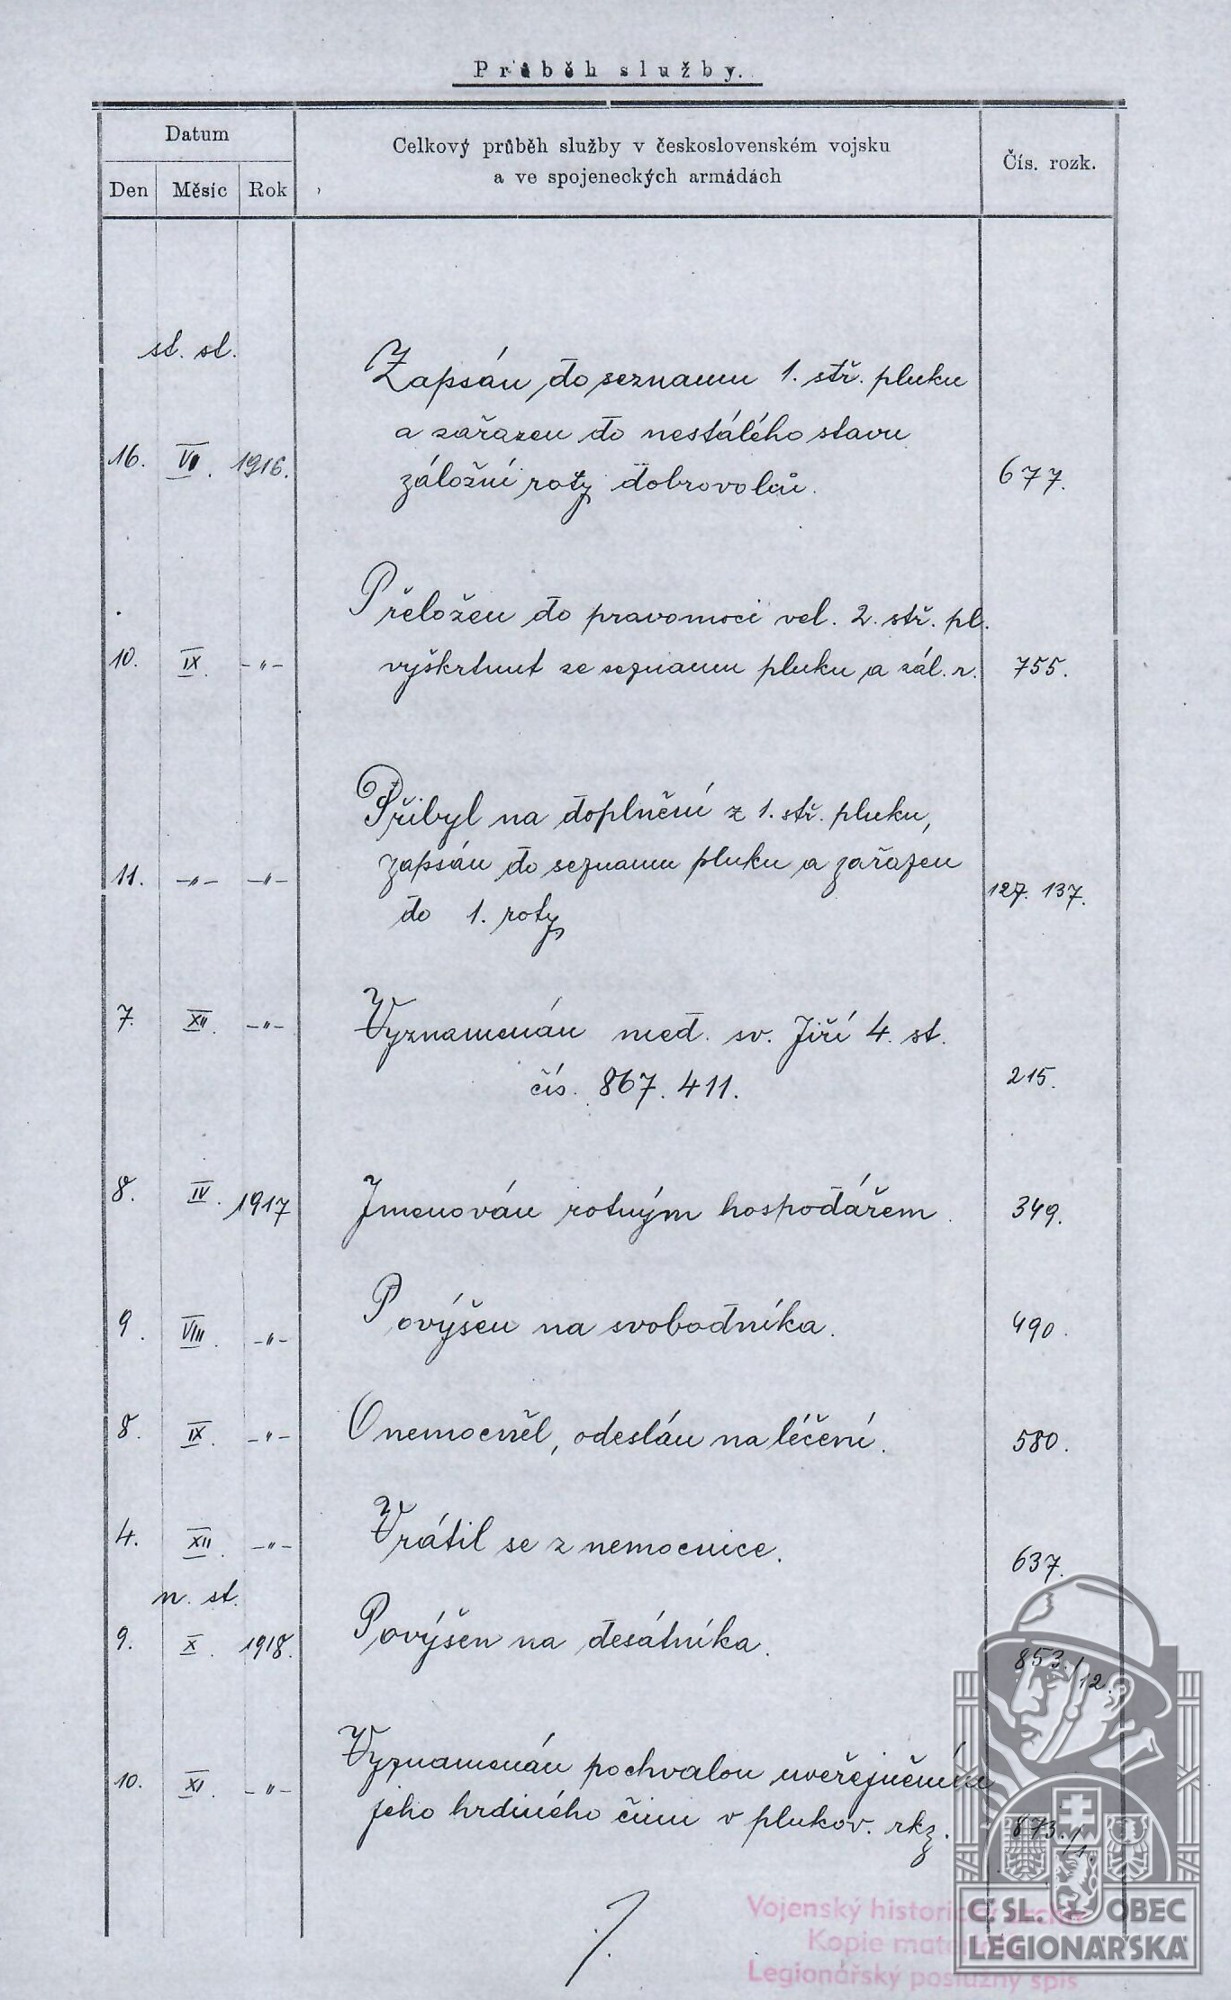 Průběh služby.
Datum
Celkový průběh služby v československém vojsku
a ve spojeneckých armádách
Čís. rozk.
Den Měsíc Rok
st. st.
Zapsán do seznamu 1. stř. pluku
a zařazen do nestálého stavu
16. VII. 1916. záložní roty dobrovolců. 677.
Přeložen do pravomoci vel. 2. stř. pl.
10. IX. -"- vyškrtnut ze seznamu pluku a zál. r. 755.
Přibyl na doplnění z 1. stř. pluku,
11. -"- -"- zapsán do seznamu pluku a zařazen 127. 137.
do 1. roty
7. XII. -"- Vyznamenán med. sv. Jiří 4. st.
čís. 867.411. 215.
8. IV. 1917 Jmenován rotným hospodářem. 349.
9. VIII. -"- Povýšen na svobodníka. 490.
8. IX. -"- Onemocněl, odeslán na léčení. 580.
4. XII. -"- Vrátil se z nemocnice. 637.
n. st.
9. X. 1918. Povýšen na desátníka. 853./12.
10. XI. -"- Vyznamenán pochvalou uveřejněním
jeho hrdiného činu v plukov. rkz. 873./1.
./.
Vojenský historický archiv
Kopie materiálu
Legionářský poslužný spis
ČSL. OBEC
LEGIONÁŘSKÁ